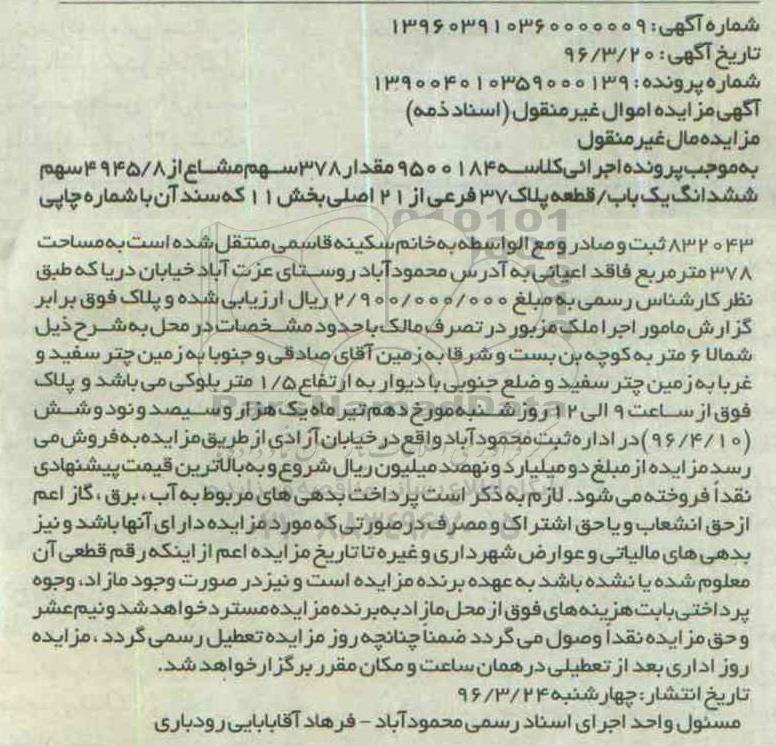 شماره آگهی: ۱۳۹۶۰۳۹۱۰۳۶۰۰۰۰۰۰۹
تاریخ آگهی: ۹۶/۳/۲۰
شماره پرونده: ۱۳۹۰۰۴۰۱۰۳۵۹۰۰۰۱۳۹
آگهی مزایده اموال غیرمنقول (اسناد ذمه)
مزایده مال غیرمنقول
به موجب پرونده اجرائی کلاسه ۹۵۰۰۱۸۴ مقدار ۳۷۸ سهم مشاع از ۴۹۴۵/۸ سهم
ششدانگ یک باب/قطعه پلاک ۳۷ فرعی از ۲۱ اصلی بخش ۱۱ که سند آن با شماره چاپی
۸۳۲۰۴۳ ثبت و صادر و مع الواسطه به خانم سکینه قاسمی منتقل شده است به مساحت
۳۷۸ متر مربع فاقد اعیانی به آدرس محمودآباد روستای عزت آباد خیابان دریا که طبق
نظر کارشناس رسمی به مبلغ ۲/۹۰۰/۰۰۰/۰۰۰ ریال ارزیابی شده و پلاک فوق برابر
گزارش مامور اجرا ملک مزبور در تصرف مالک با حدود مشخصات در محل به شرح ذیل
شمالا ۶ متر به کوچه بن بست و شرقا به زمین آقای صادقی و جنوبا به زمین چتر سفید و
غربا به زمین چتر سفید و ضلع جنوبی با دیوار به ارتفاع ۱/۵ متر بلوکی می باشد و پلاک
فوق از ساعت ۹ الی ۱۲ روز شنبه مورخ دهم تیر ماه یک هزار و سیصد و نود و شش
(۹۶/۴/۱۰) در اداره ثبت محمودآباد واقع در خیابان آزادی از طریق مزایده به فروش می
رسد مزایده از مبلغ دو میلیارد و نهصد میلیون ریال شروع و به بالاترین قیمت پیشنهادی
نقداً فروخته می شود. لازم به ذکر است پرداخت بدهی های مربوط به آب، برق، گاز اعم
از حق انشعاب و یا حق اشتراک و مصرف در صورتی که مورد مزایده دارای آنها باشد و نیز
بدهی های مالیاتی و عوارض شهرداری و غیره تا تاریخ مزایده اعم از اینکه رقم قطعی آن
معلوم شده یا نشده باشد به عهده برنده مزایده است و نیز در صورت وجود مازاد، وجوه
پرداختی بابت هزینه های فوق از محل مازاد به برنده مزایده مسترد خواهد شد و نیم عشر
و حق مزایده نقداً وصول می گردد ضمناً چنانچه روز مزایده تعطیل رسمی گردد، مزایده
روز اداری بعد از تعطیلی در همان ساعت و مکان مقرر برگزار خواهد شد.
تاریخ انتشار: چهارشنبه ۹۶/۳/۲۴
مسئول واحد اجرای اسناد رسمی محمودآباد - فرهاد آقابابایی رودباری